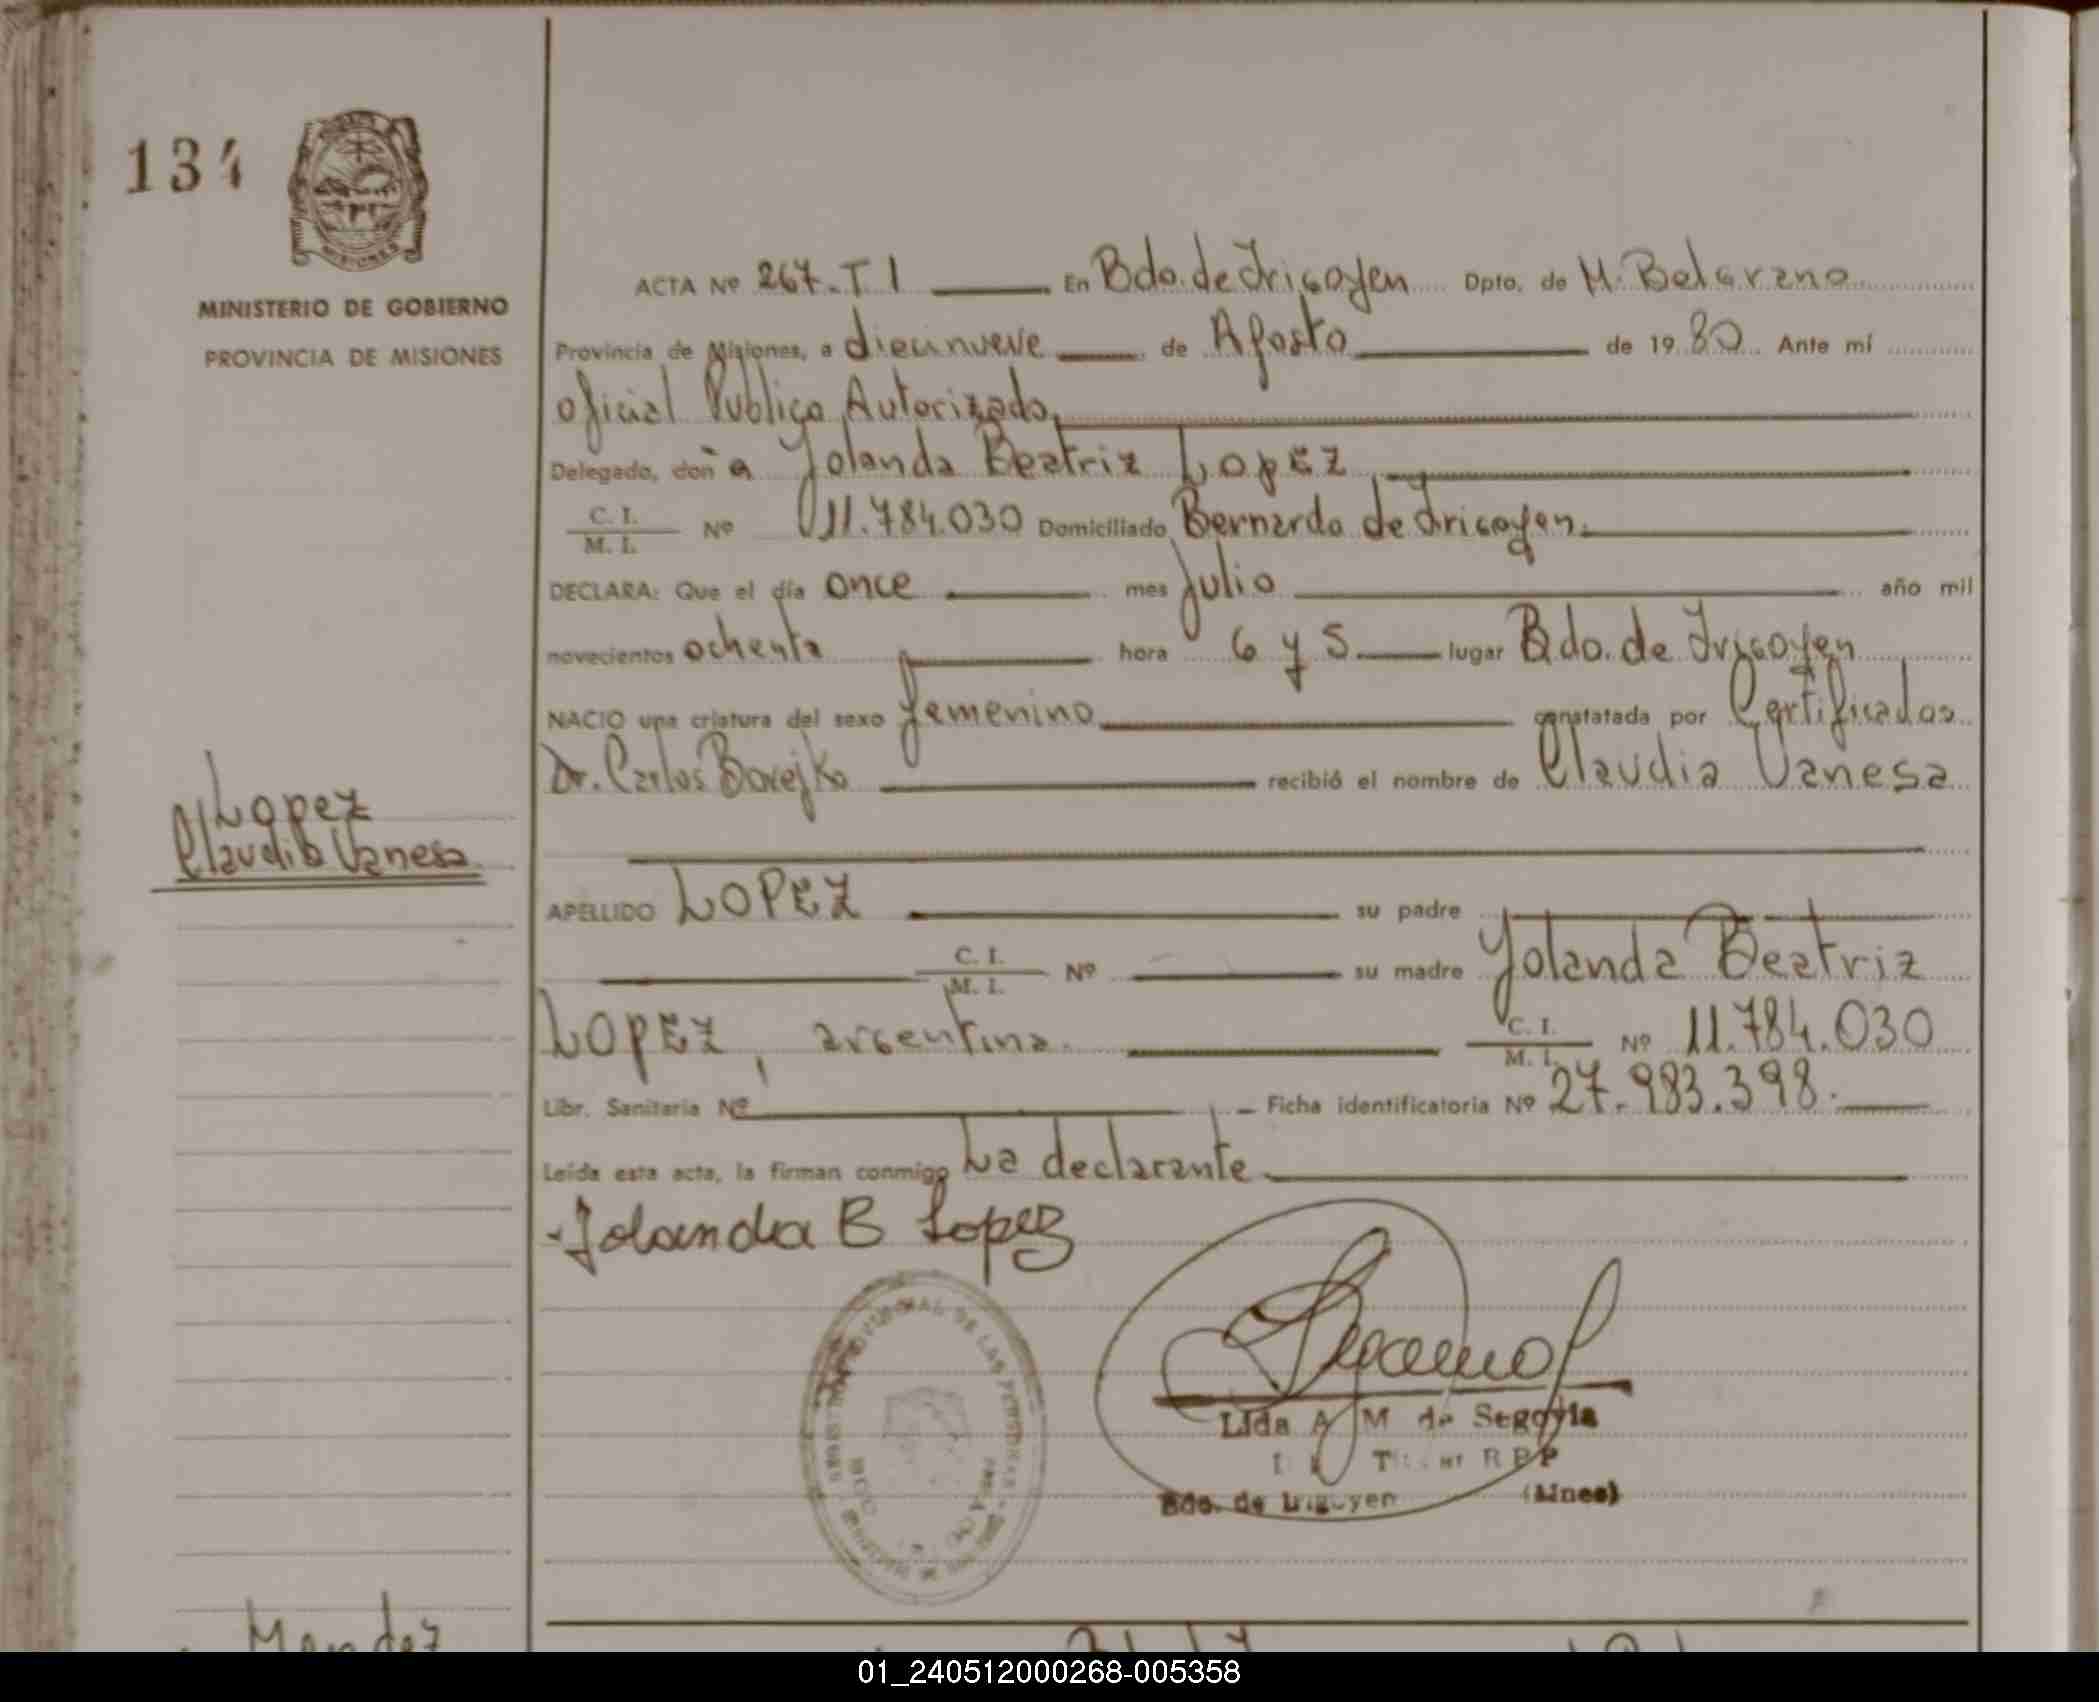 134
MISIONES
MINISTERIO DE GOBIERNO
PROVINCIA DE MISIONES
Lopez
Claudia Vanesa
ACTA Nº 267.T I En Bdo. de Irigoyen Dpto. de M. Belgrano
Provincia de Misiones, a diecinueve de Agosto de 1980 Ante mí
oficial Publico Autorizado,
Delegado, doña Yolanda Beatriz Lopez
C. I. / M. I. Nº 11.784.030 Domiciliado Bernardo de Irigoyen.
DECLARA: Que el día once mes Julio año mil
novecientos ochenta hora 6 y 5 lugar Bdo. de Irigoyen
NACIO una criatura del sexo femenino constatada por Certificados
Dr. Carlos Borejko recibió el nombre de Claudia Vanesa
APELLIDO LOPEZ su padre
C. I. / M. I. Nº su madre Yolanda Beatriz
LOPEZ, argentina. C. I. / M. I. Nº 11.784.030
Libr. Sanitaria Nº Ficha identificatoria Nº 27.983.398.
Leída esta acta, la firman conmigo La declarante
Yolanda B Lopez
DE LAS PERSONAS
Lida A M de Segovia
RPP
Bdo. de Irigoyen (Mnes)
Mendez
01_240512000268-005358